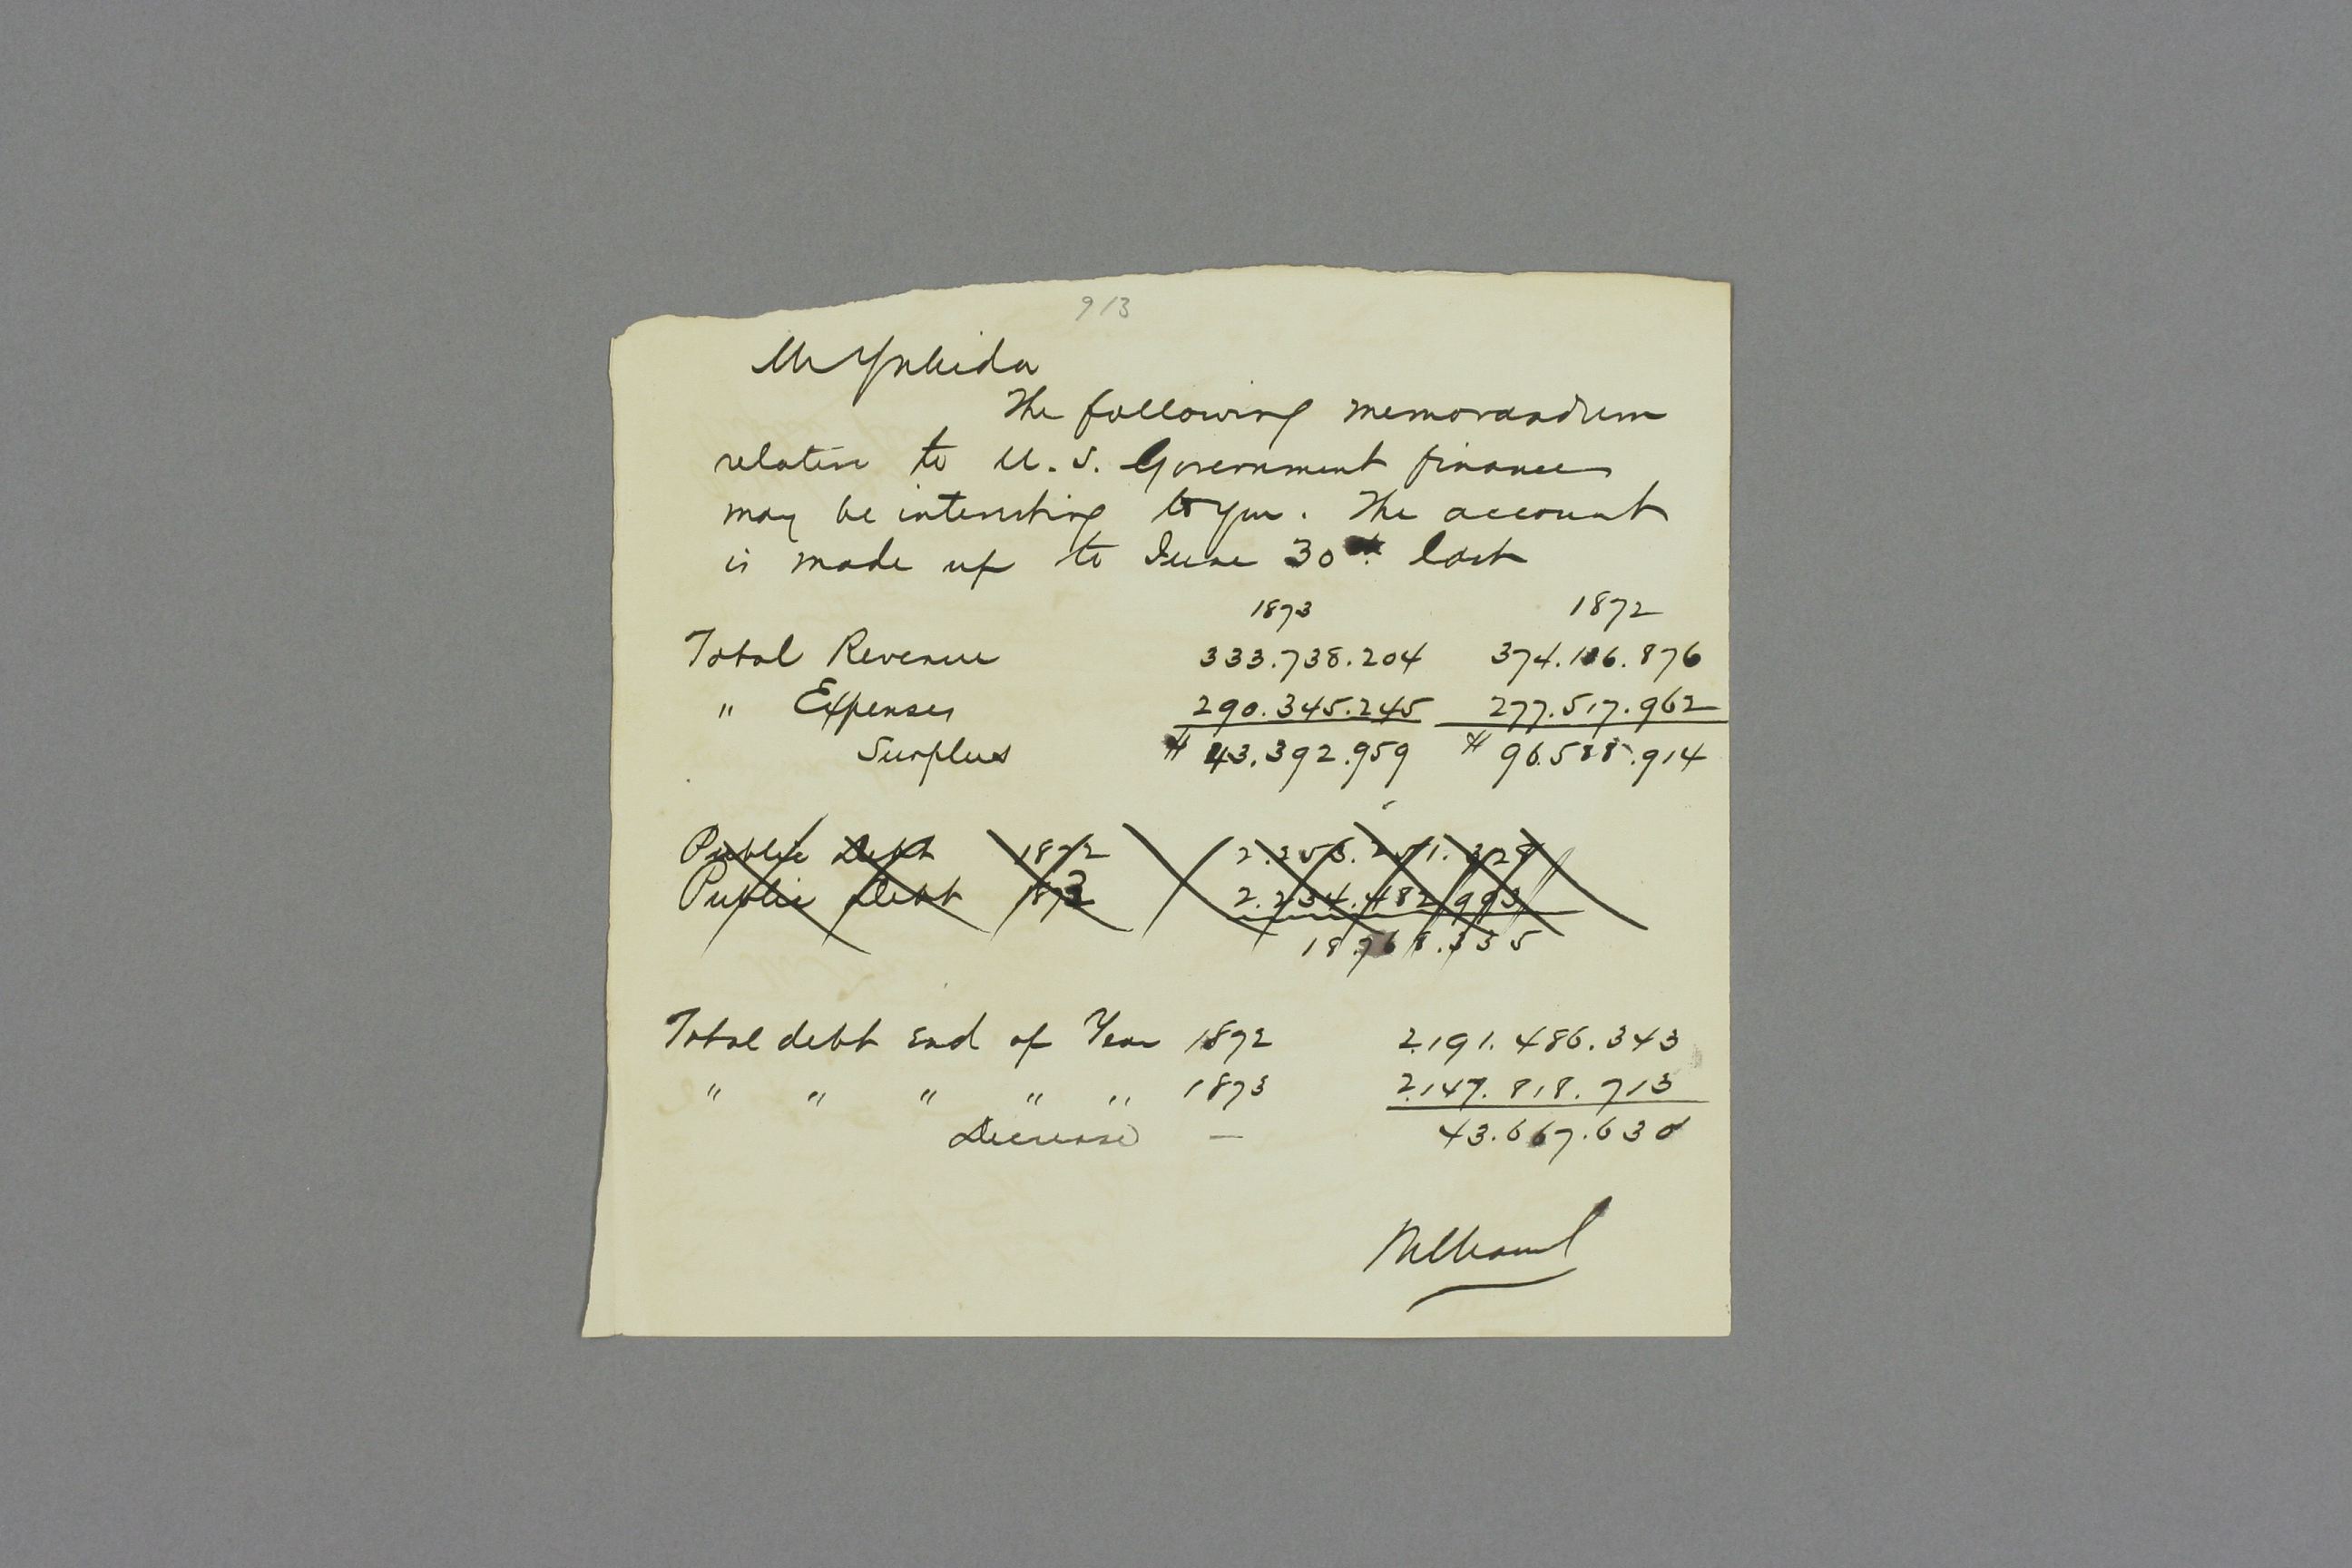 913
Mr Yoshida
The following memorandum
relative to U.S. Government finances
may be interesting to you. The account
is made up to June 30th last
1873 1872
Total Revenue 333.738.204 374.106.876
" Expenses 290.345.245 277.517.962
Surplus $ 43.392.959 $ 96.588.914
Public Debt 1872 2.253.251.328
Public Debt 1873 2.234.482.993
18.768.335
Total debt end of Year 1872 2.191.486.343
" " " " " 1873 2.147.818.713
Decrease — 43.667.630